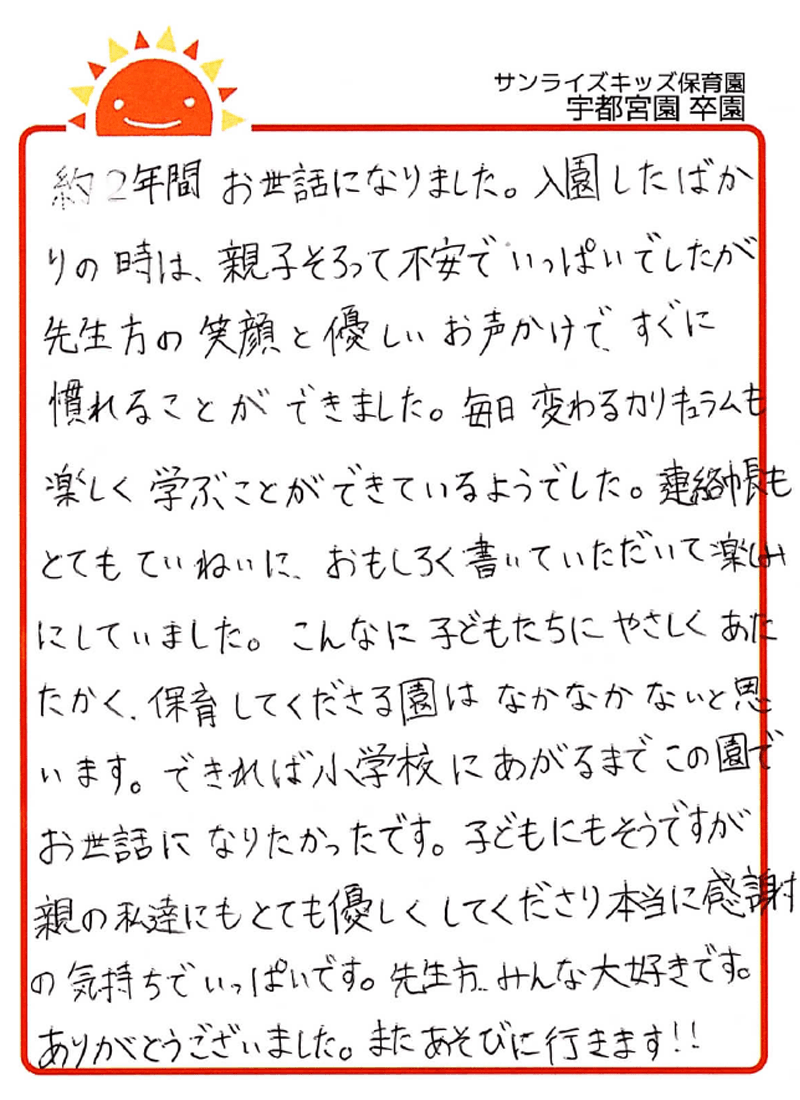 サンライズキッズ保育園
宇都宮園 卒園
約2年間 お世話になりました。入園したばか
りの時は、親子そろって不安でいっぱいでしたが
先生方の笑顔と優しいお声かけで、すぐに
慣れることができました。毎日変わるカリキュラムも
楽しく学ぶことができているようでした。連絡帳も
とてもていねいに、おもしろく書いていただいて楽しみ
にしていました。こんなに子どもたちにやさしくあた
たかく、保育してくださる園はなかなかないと思
います。できれば小学校にあがるまでこの園で
お世話になりたかったです。子どもにもそうですが
親の私達にもとても優しくしてくださり本当に感謝
の気持ちでいっぱいです。先生方、みんな大好きです。
ありがとうございました。またあそびに行きます!!